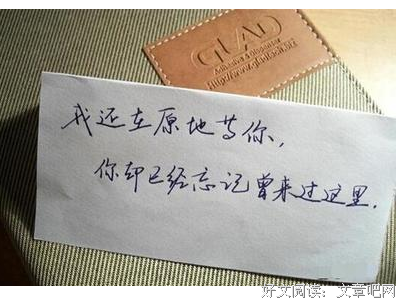 GLAD
我还在原地等你,
你却已经忘记曾来过这里.
好文阅读：文章吧网